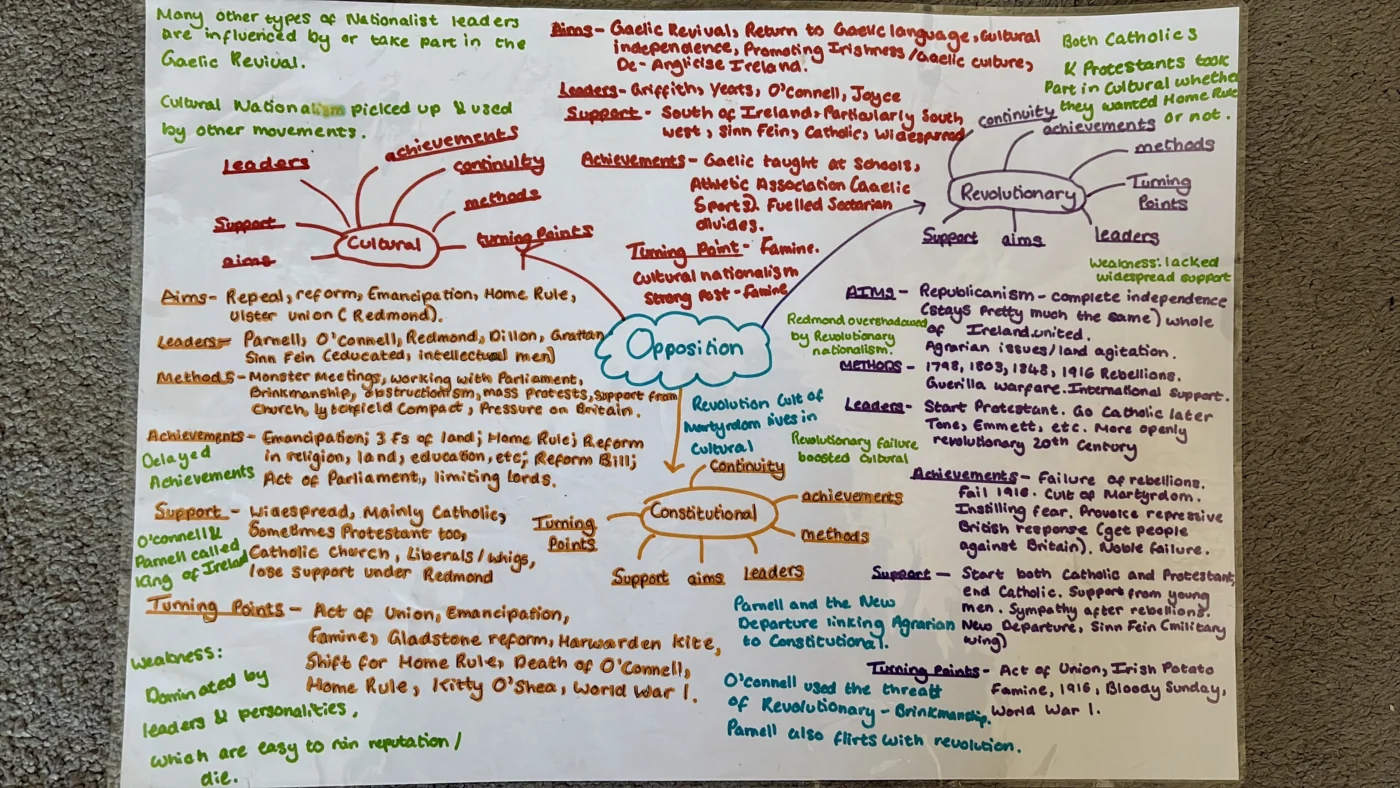 Many other types of Nationalist leaders
are influenced by or take part in the
Gaelic Revival.
Cultural Nationalism picked up & used
by other movements.
Leaders
achievements
continuity
methods
turning points
Support
aims
Cultural
Aims- Gaelic Revival, Return to Gaelic language, Cultural
independence, Promoting Irishness/Gaelic culture,
De-Anglicise Ireland.
Leaders- Griffith, Yeats, O'Connell, Joyce
Support - South of Ireland, Particularly South
west, Sinn Fein, Catholic, Widespread
Achievements- Gaelic taught at schools,
Athletic Association (Gaelic
Sports). Fuelled Sectarian
divides.
Turning Point- Famine.
Cultural nationalism
Strong Post-famine
Both Catholics
& Protestants took
Part in Cultural whether
they wanted Home Rule
or not.
continuity
achievements
methods
Turning
Points
leaders
aims
Support
Revolutionary
Weakness: lacked
widespread support
Opposition
Aims- Repeal, reform, Emancipation, Home Rule,
Ulster union (Redmond).
Leaders- Parnell, O'Connell, Redmond, Dillon, Grattan
Sinn Fein (educated, intellectual men)
Methods- Monster Meetings, working with Parliament,
Brinkmanship, obstructionism, mass Protests, Support from
Church, Lybchfield Compact, Pressure on Britain.
Achievements- Emancipation; 3 Fs of land; Home Rule; Reform
in religion, land, education, etc; Reform Bill;
Act of Parliament, limiting lords.
Delayed
Achievements
Support - Widespread, Mainly Catholic,
Sometimes Protestant too,
Catholic church, Liberals/whigs,
lose support under Redmond
O'connell &
Parnell called
King of Ireland
Turning Points - Act of Union, Emancipation,
Famine, Gladstone reform, Harwarden Kite,
Shift for Home Rule, Death of O'Connell,
Home Rule, Kitty O'Shea, World War 1.
Weakness:
Dominated by
leaders & personalities,
which are easy to ruin reputation/
die.
Redmond overshadowed
by Revolutionary
nationalism.
Revolution Cult of
Martyrdom lives in
Cultural
Revolutionary failure
boosted Cultural
Continuity
achievements
methods
leaders
aims
Support
Turning
Points
Constitutional
AIMS - Republicanism - complete independence
(stays pretty much the same) whole
of Ireland united.
Agrarian issues/land agitation.
METHODS - 1798, 1803, 1848, 1916 Rebellions.
Guerilla warfare. International support.
Leaders- Start Protestant. Go Catholic later
Tone, Emmett, etc. More openly
revolutionary 20th Century
Achievements - Failure of rebellions.
Fail 1916. Cult of Martyrdom.
Instilling fear. Provoke repressive
British response (get people
against Britain). Noble failure.
Support - Start both Catholic and Protestant,
end Catholic. Support from young
men. Sympathy after rebellions.
New Departure, Sinn Fein (military
wing)
Turning Points- Act of Union, Irish Potato
Famine, 1916, Bloody Sunday,
World War 1.
Parnell and the New
Departure linking Agrarian
to Constitutional.
O'Connell used the threat
of Revolutionary - Brinkmanship.
Parnell also flirts with revolution.